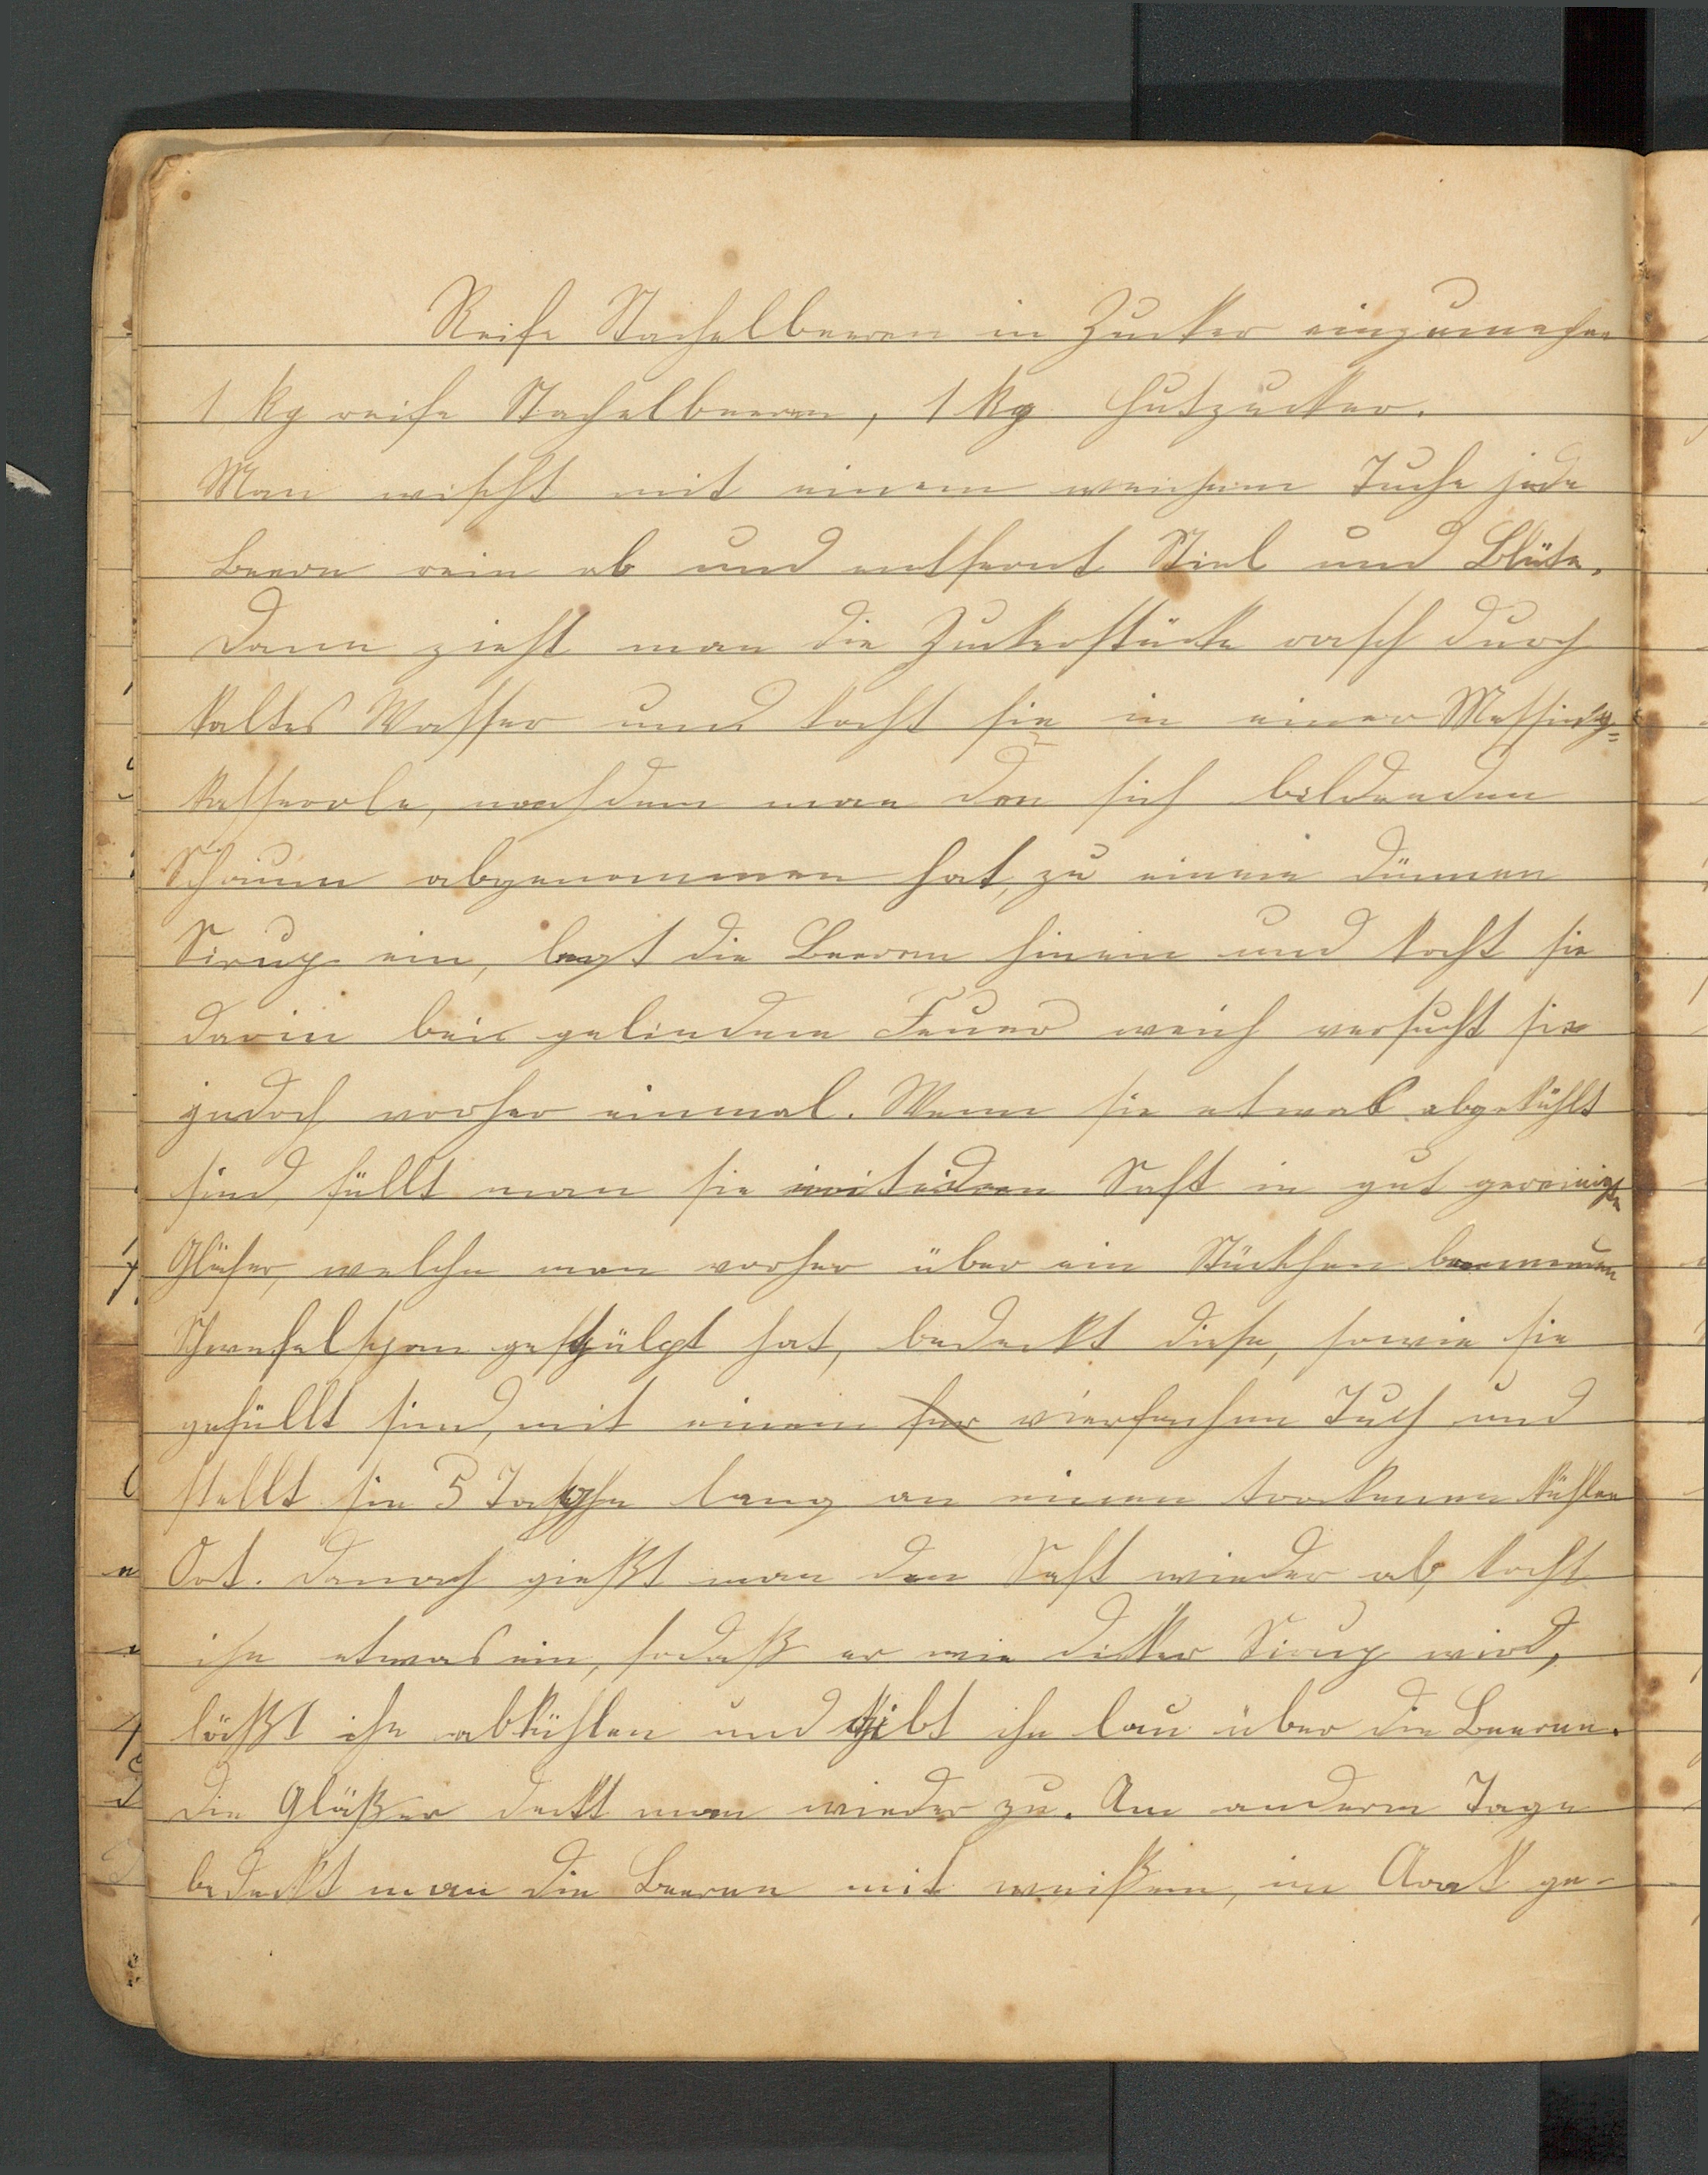 Reife Stachelbeeren in Zucker einzumachen
1 kg reife Stachelbeeren, 1 kg Hutzucker.
Man wischt mit einem weichem Tuche jede
Beere rein ab und entfernt Stiel und Blüte.
Dann zieht man die Zuckerstücke rasch durch
kaltes Wasser und kocht sie in einer Messing=
kasserole, nachdem man den sich bildenden
Schaum abgenommen hat, zu einem dünnen
Sirup ein, legt die Beeren hinein und kocht sie
darin bei gelindem Feuer weich versucht sie
jedoch vorher einmal. Wenn sie etwas abgekühlt
sind, füllt man sie mit dem Saft in gut gereinigte
Gläser, welche man vorher über ein Stückchen brennenden
Schwefelspan gestülpt hat, bedeckt diese, sowie sie
gefüllt sind, mit einem vierfachen Tuch und
stellt sie 5 Tage lang an einen trockenen kühlen
Ort. Danach gießt man den Saft wieder ab, kocht
ihn etwas ein, sodaß er wie dicker Sirup wird,
läßt ihn abkühlen und gibt ihn lau über die Beeren.
Die Gläßer deckt man wieder zu. Am andern Tage
bedeckt man die Beeren mit weißem, in Arak ge-